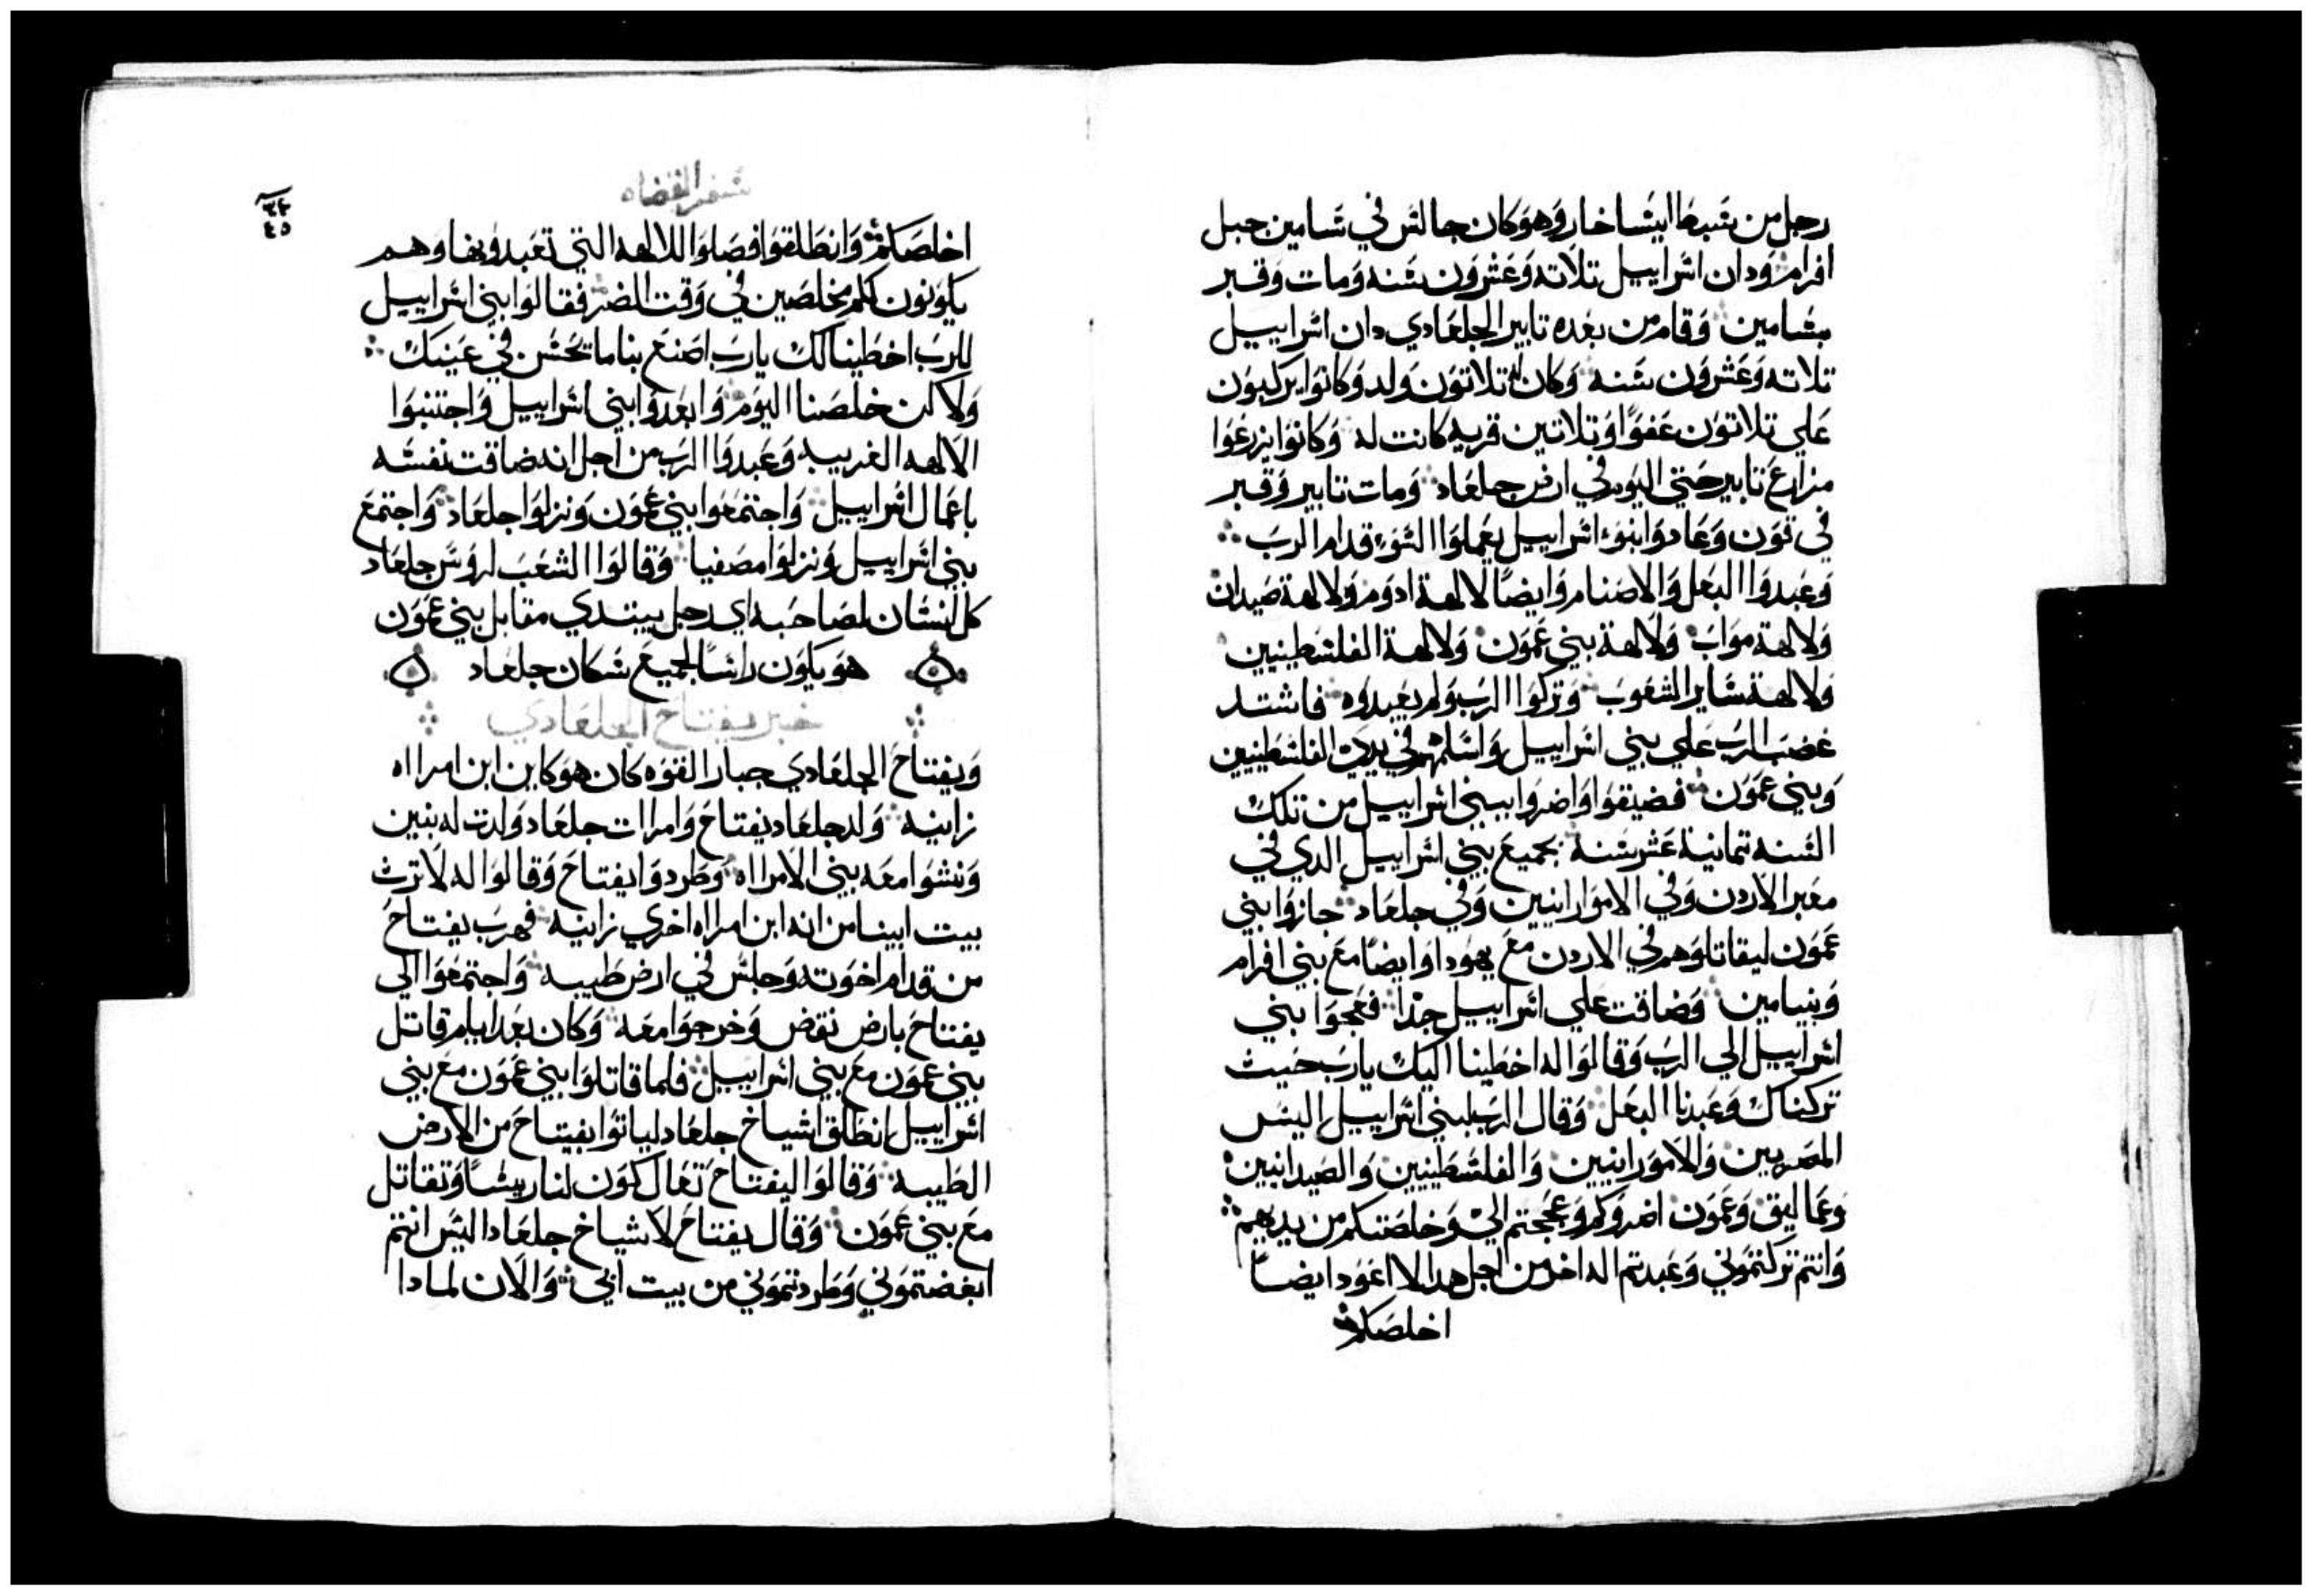 رجل من سبط ايساخار وهو كان جالس في سامين جبل
افرام ودان اسراييل تلاته وعشرون سنه ومات وقبر
بسامين وقام من بعده تايير الجلعادي دان اسراييل
تلاته وعشرون سنه وكان له تلاتون ولد وكانوا يركبون
علي تلاتون عفوًا وتلاتين قريه كانت له وكانوا يزرعوا
مزارع تايير حتي اليوم في ارض جلعاد ومات تايير وقبر
في قون وعادوا بنوء اسراييل يعملوا السوء قدام الرب
وعبدوا البعل والاصنام وايضًا لالهة ادوم ولالهة صيدان
ولالهة مواب ولالهة بني عمون ولالهة الفلسطينيين
ولالهة ساير الشعوب وتركوا الرب ولم يعبدوه فاشتد
غضب الرب علي بني اسراييل واسلمهم في يدي الفلسطينيين
وبني عمون فضيقوا واضروا ببني اسراييل من تلك
السنه تمانية عشر سنة بجميع بني اسراييل الدي في
معبر الاردن وفي الاموارانيين وفي جلعاد جازوا بني
عمون ليقاتلوهم في الاردن مع يهودا وايضًا مع بني افرام
وبنيامين وضاقت علي اسراييل جدًا فعجوا بني
اسراييل الي الرب وقالوا له اخطينا اليك يارب حيث
تركناك وعبدنا البعل وقال الرب لبني اسراييل اليس
المصريين والامورانيين والفلسطينيين والصيدانيين
وعماليق وعمون اضروكم وعججتم الي وخلصتكم من يديهم
وانتم تركتموني وعبدتم اله اخر من اجل هدا لا اعود ايضًا
اخلصكم
سفر القضاه
٣٢
٤٥
اخلصكم وانطلقوا فصلوا للالهه التي تعبدونها وهم
يكونون لكم مخلصين في وقت الضر فقالوا بني اسراييل
للرب اخطينا لك يارب اصنع بنا ما يحسن في عينيك
ولاكن خلصنا اليوم وابعدوا بني اسراييل واجتنبوا
الالهه الغريبه وعبدوا الرب من اجل انه ضاقت نفسه
باعمال اسراييل واجتمعوا بني عمون ونزلوا جلعاد واجتمع
بني اسراييل ونزلوا مصفيا وقالوا الشعب لروس جلعاد
كل انسان لصاحبه اي رجل يبتدي مقابل بني عمون
هو يكون راسًا لجميع سكان جلعاد
خبر يفتاح الجلعادي
ويفتاح الجلعادي جبار القوه كان هو كاين ابن امرااه
زانيه ولد جلعاد يفتاح وامراات جلعاد ولدت له بنين
ونشوا معه بني الامرااه وطردوا يفتاح وقالوا له لا ترث
بيت ابينا من انه ابن امرااه اخري زانيه فهرب يفتاح
من قدام اخوته وجلس في ارض طيبه واجتمعوا الي
يفتاح بارض نقض وخرجوا معه وكان بعد ايام قاتل
بني عمون مع بني اسراييل فلما قاتلوا بني عمون مع بني
اسراييل انطلق اشياخ جلعاد لياتوا بفيتاح من الارض
الطيبه وقالوا ليفتاح تعال كون لنا رييسًا وتقاتل
مع بني عمون وقال يفتاح لاشياخ جلعاد اليس انتم
ابغضتموني وطردتموني من بيت ابي والان لمادا